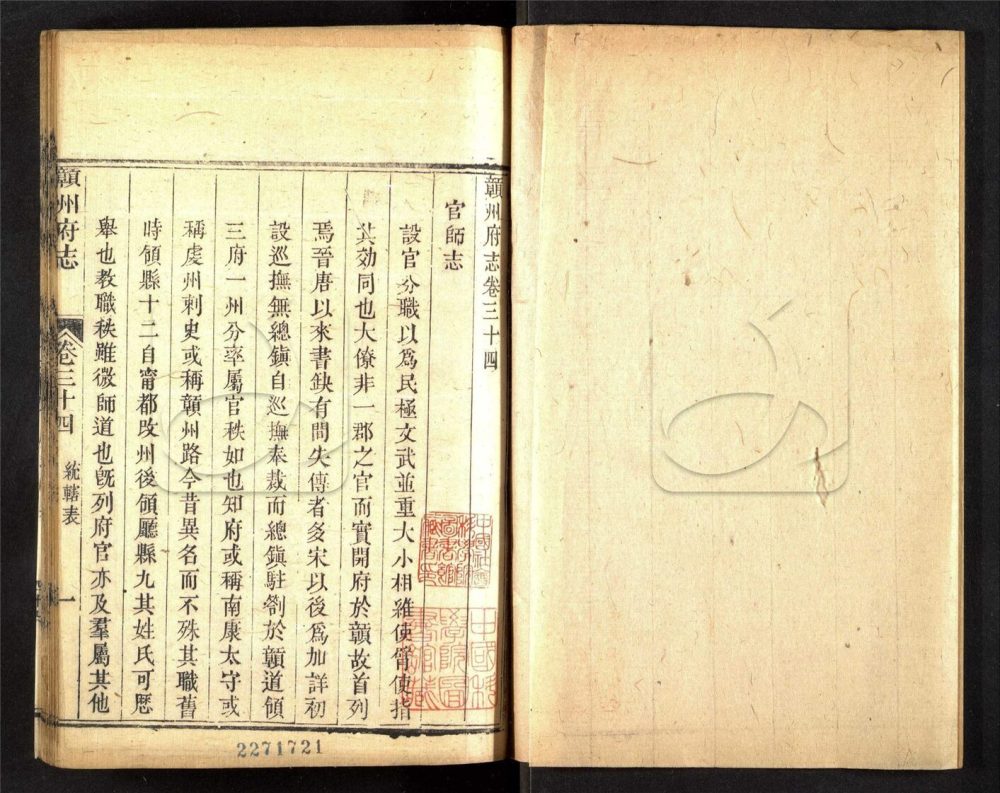 贛州府志卷三十四
官師志
設官分職以爲民極文武並重大小相維使臂使指
其効同也大僚非一郡之官而實開府於贛故首列
焉晉唐以來書缺有間失傳者多宋以後爲加詳初
設巡撫無總鎭自巡撫奉裁而總鎭駐劄於贛道領
三府一州分率屬官秩如也知府或稱南康太守或
稱虔州刺史或稱贛州路今昔異名而不殊其職舊
時領縣十二自甯都改州後領廳縣九其姓氏可歷
舉也教職秩雖微師道也旣列府官亦及羣屬其他
贛州府志
卷三十四
統轄表
一
2271721